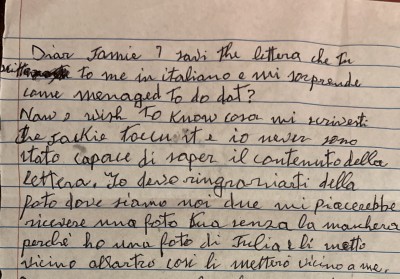 Diar Jamie I savi the lettera che tu
to me in italiano e mi sorprende
come menaged to do dat?
Now I wish to know cosa mi scrivesti
the Jackie toccu it e io never sono
stato capace di saper il contenuto della
lettera. Io devo ringraziarti della
foto dove siamo noi due mi piacerebbe
ricevere una foto tua senza la maschera
perché ho una foto di Julia e li metto
vicino all'altro così li metterò vicino a me.